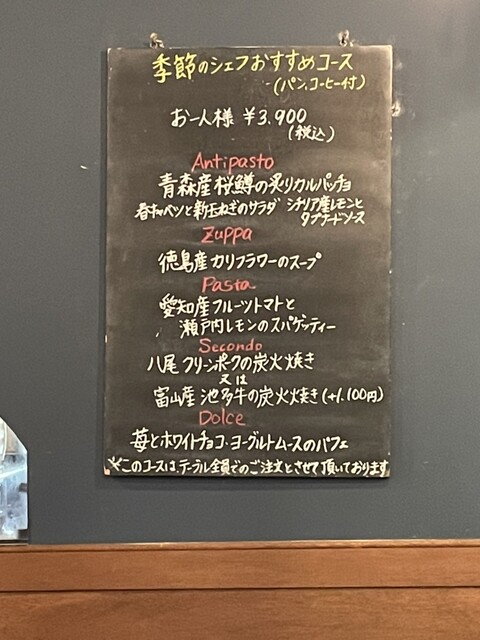 季節のシェフおすすめコース
(パン、コーヒー付)
お一人様 ¥3,900
(税込)
Antipasto
青森産桜鱒の炙りカルパッチョ
春キャベツと新玉ねぎのサラダ シチリア産レモンと
タプナードソース
Zuppa
徳島産カリフラワーのスープ
Pasta
愛知産フルーツトマトと
瀬戸内レモンのスパゲッティー
Secondo
八尾クリーンポークの炭火焼き
又は
富山産池多牛の炭火焼き(+1,100円)
Dolce
苺とホワイトチョコ・ヨーグルトムースのパフェ
※このコースは、テーブル全員でのご注文とさせて頂いております